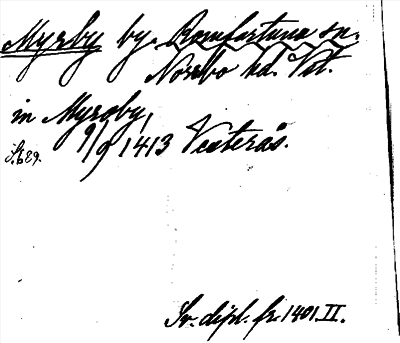 Myrby by. Romfartuna sn.
Norrbo hd. Vst.
in Myroby,
9/9 1413 Vesterås.
Sv. dipl. fr. 1401. II.